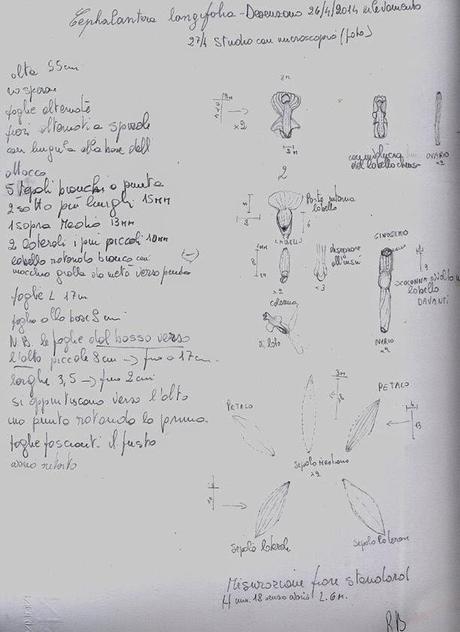 Cephalantera longifolia - Desenzano 26/4/2014 rilevamento
27/4 studio con microscopio (foto)
alta 55 cm
foglie alternate
fiori alternati a spirale
5 tepali bianchi a punta
2 sotto più lunghi 15mm
1 sopra medio 13mm
2 laterali i più piccoli 10mm
labello rotondo bianco con
macchia gialla da metà verso punta
foglie L 17cm
foglia alla base 5 cm
N.B. le foglie dal basso verso
l'alto piccole 8cm → fino a 17cm.
larghe 3,5 → fino 2cm
si appuntiscono verso l'alto
una punta rotonda la prima.
foglie fascianti il fusto
x2
OVARIO
x2
2
Parte interna
labello
LABELLO
x2
x3
GINOSTEMIO
labello
DAVANTI
OVARIO
x2
colonna
di lato
PETALO
PETALO
Sepalo Mediano
x2
Sepalo laterale
Sepalo laterale
Misurazione fiore standard
H mm. 18
RB